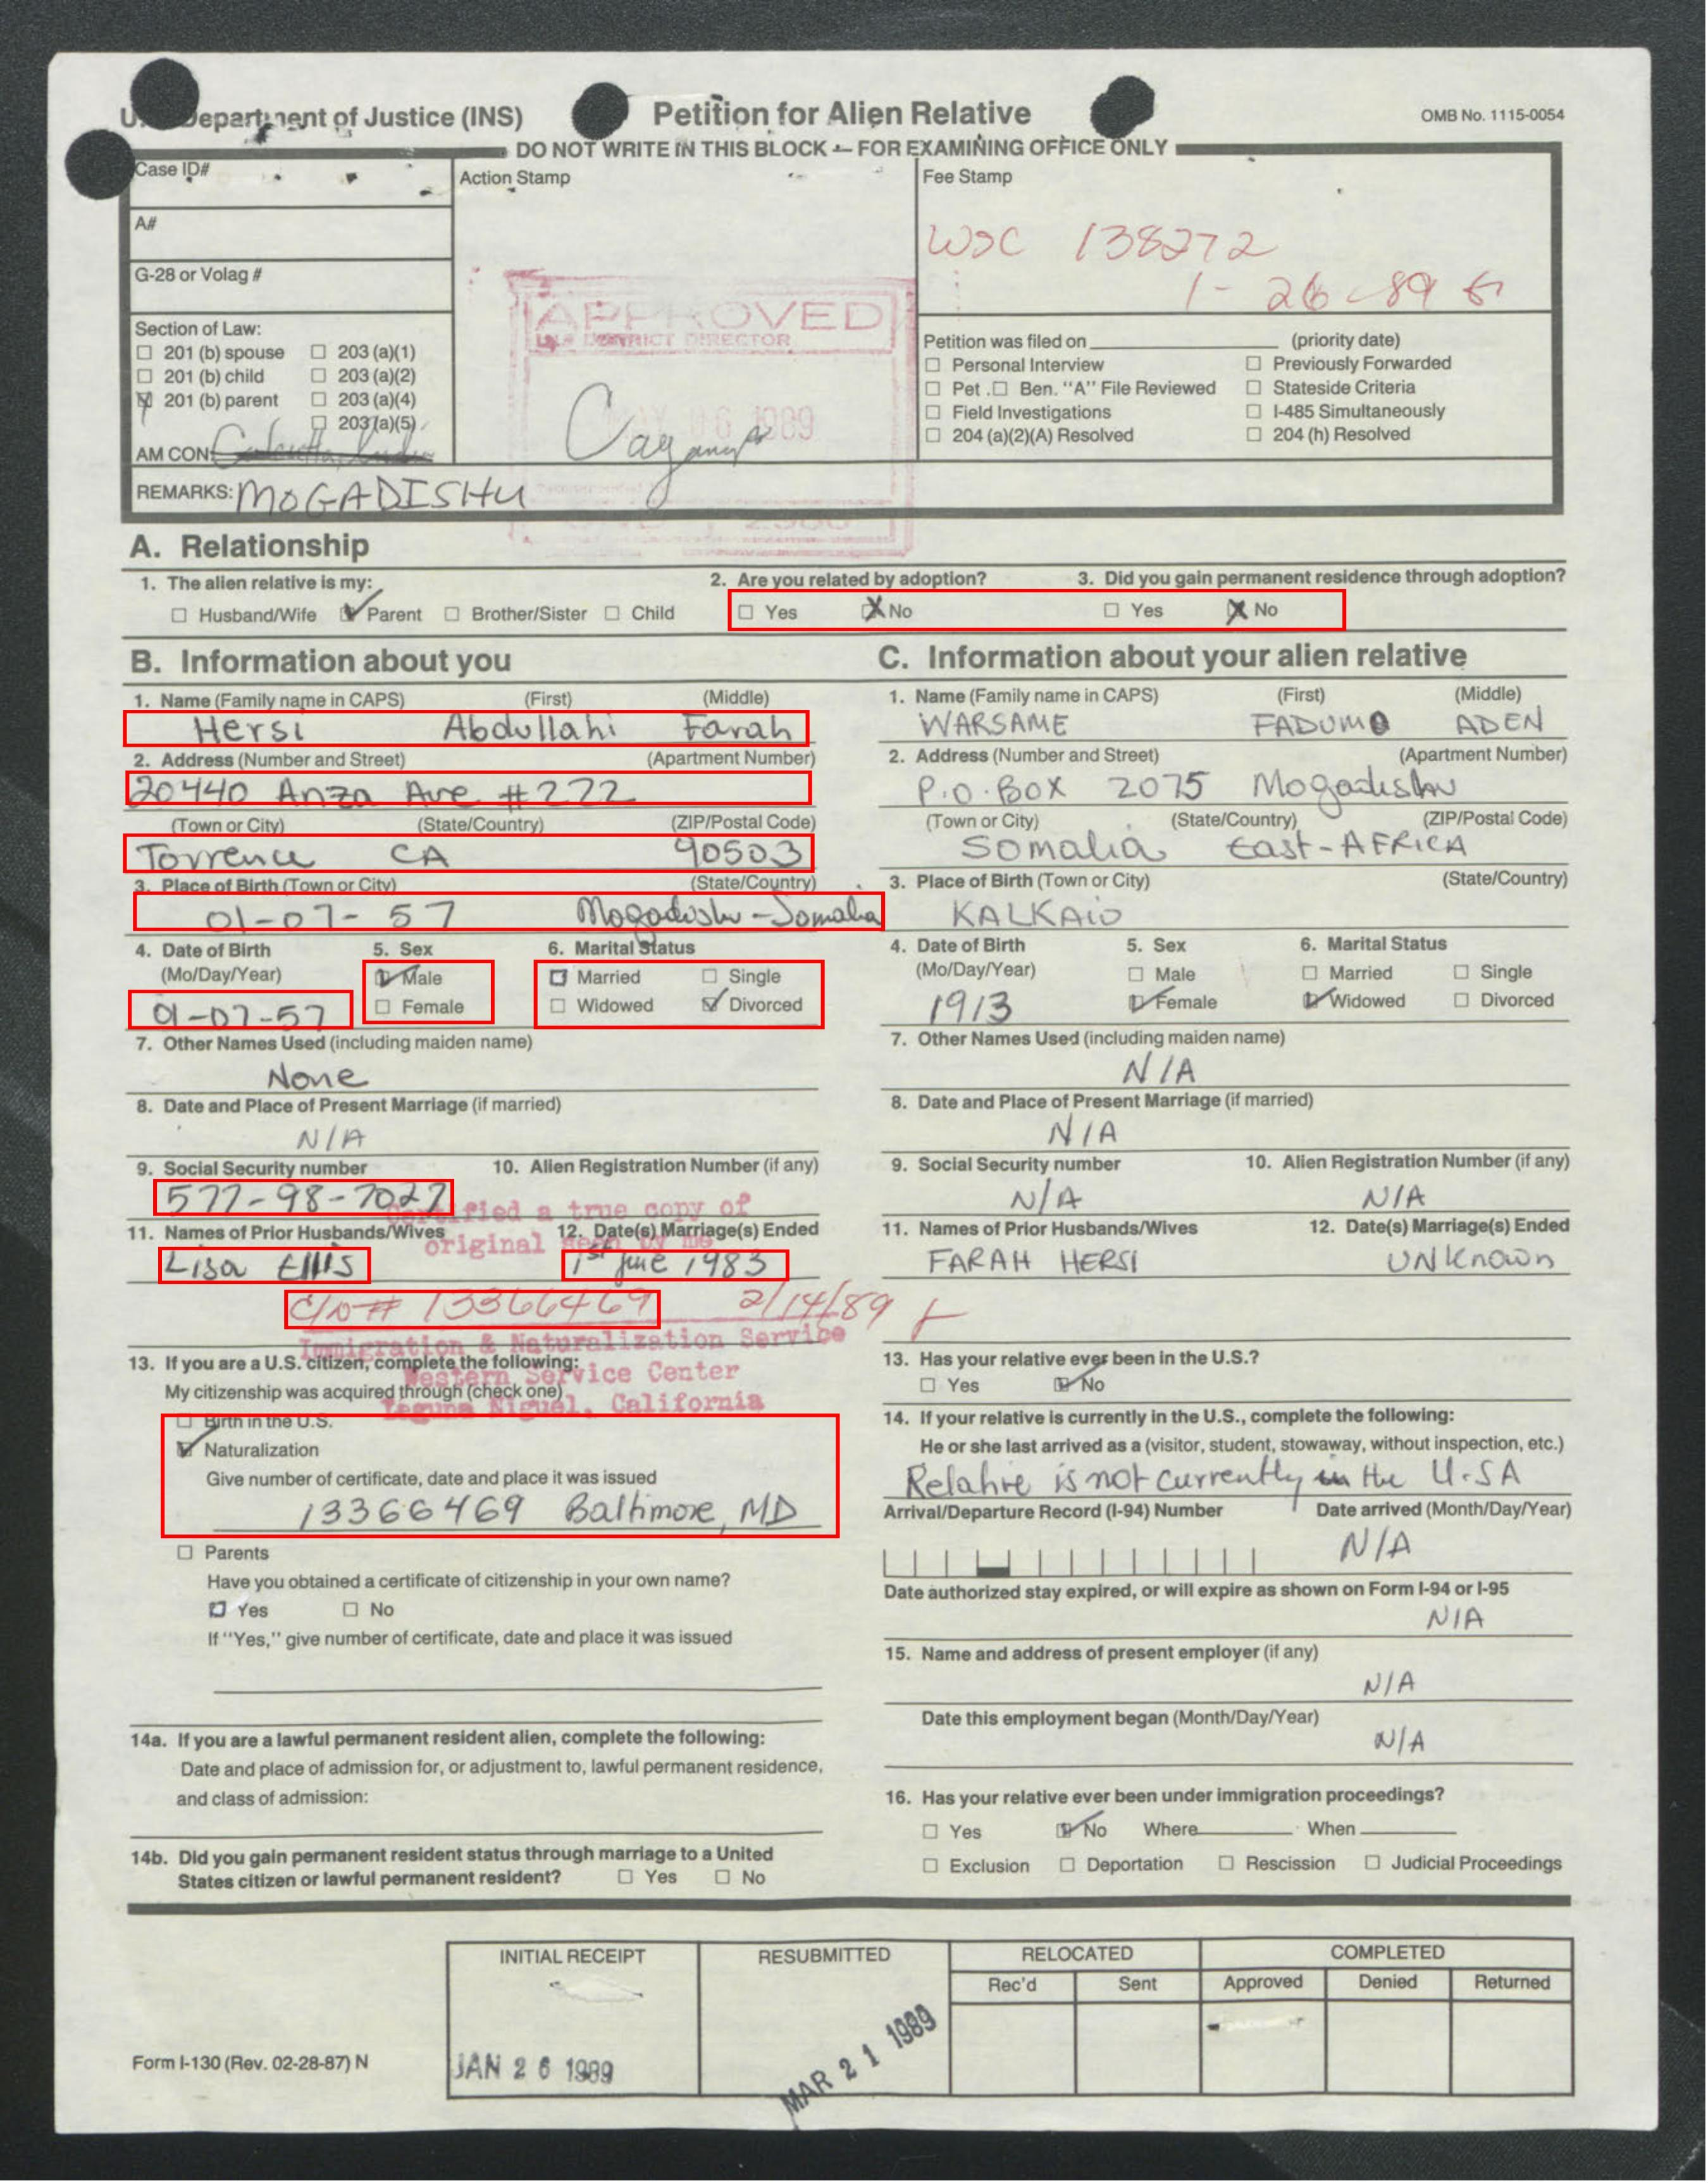 U. Department of Justice (INS)
Petition for Alien Relative
OMB No. 1115-0054
DO NOT WRITE IN THIS BLOCK — FOR EXAMINING OFFICE ONLY
Case ID#
Action Stamp
Fee Stamp
A#
WSC 138272
G-28 or Volag #
1-26-89
APPROVED
DISTRICT DIRECTOR
Section of Law:
☐ 201 (b) spouse ☐ 203 (a)(1)
☐ 201 (b) child ☐ 203 (a)(2)
☒ 201 (b) parent ☐ 203 (a)(4)
☐ 203 (a)(5)
AM CON:
06 1989
Petition was filed on (priority date)
☐ Personal Interview ☐ Previously Forwarded
☐ Pet. ☐ Ben. "A" File Reviewed ☐ Stateside Criteria
☐ Field Investigations ☐ I-485 Simultaneously
☐ 204 (a)(2)(A) Resolved ☐ 204 (h) Resolved
REMARKS: MOGADISHU
A. Relationship
1. The alien relative is my:
☐ Husband/Wife ☑ Parent ☐ Brother/Sister ☐ Child
2. Are you related by adoption?
☐ Yes ☒ No
3. Did you gain permanent residence through adoption?
☐ Yes ☒ No
B. Information about you
1. Name (Family name in CAPS) (First) (Middle)
Hersi Abdullahi Farah
2. Address (Number and Street) (Apartment Number)
20440 Anza Ave #272
(Town or City) (State/Country) (ZIP/Postal Code)
Torrence CA 90503
3. Place of Birth (Town or City) (State/Country)
01-07-57 Mogadishu-Somalia
4. Date of Birth 5. Sex 6. Marital Status
(Mo/Day/Year) ☑ Male ☐ Married ☐ Single
01-07-57 ☐ Female ☐ Widowed ☑ Divorced
7. Other Names Used (including maiden name)
None
8. Date and Place of Present Marriage (if married)
N/A
9. Social Security number 10. Alien Registration Number (if any)
577-98-7027
Certified a true copy of
11. Names of Prior Husbands/Wives 12. Date(s) Marriage(s) Ended
original seen by me
Lisa Ellis 1st June 1983
C/N# 13366469 2/14/89
Immigration & Naturalization Service
13. If you are a U.S. citizen, complete the following:
Western Service Center
My citizenship was acquired through (check one)
Laguna Niguel, California
☐ Birth in the U.S.
☑ Naturalization
Give number of certificate, date and place it was issued
13366469 Baltimore, MD
☐ Parents
Have you obtained a certificate of citizenship in your own name?
☐ Yes ☐ No
If "Yes," give number of certificate, date and place it was issued
14a. If you are a lawful permanent resident alien, complete the following:
Date and place of admission for, or adjustment to, lawful permanent residence,
and class of admission:
14b. Did you gain permanent resident status through marriage to a United
States citizen or lawful permanent resident? ☐ Yes ☐ No
C. Information about your alien relative
1. Name (Family name in CAPS) (First) (Middle)
WARSAME FADUMO ADEN
2. Address (Number and Street) (Apartment Number)
P.O.BOX 2075 Mogadishu
(Town or City) (State/Country) (ZIP/Postal Code)
Somalia East-AFRICA
3. Place of Birth (Town or City) (State/Country)
KALKAIO
4. Date of Birth 5. Sex 6. Marital Status
(Mo/Day/Year) ☐ Male ☐ Married ☐ Single
1913 ☑ Female ☑ Widowed ☐ Divorced
7. Other Names Used (including maiden name)
N/A
8. Date and Place of Present Marriage (if married)
N/A
9. Social Security number 10. Alien Registration Number (if any)
N/A N/A
11. Names of Prior Husbands/Wives 12. Date(s) Marriage(s) Ended
FARAH HERSI UNKnown
13. Has your relative ever been in the U.S.?
☐ Yes ☑ No
14. If your relative is currently in the U.S., complete the following:
He or she last arrived as a (visitor, student, stowaway, without inspection, etc.)
Relative is not currently in the U.SA
Arrival/Departure Record (I-94) Number Date arrived (Month/Day/Year)
N/A
Date authorized stay expired, or will expire as shown on Form I-94 or I-95
N/A
15. Name and address of present employer (if any)
N/A
Date this employment began (Month/Day/Year)
N/A
16. Has your relative ever been under immigration proceedings?
☐ Yes ☑ No Where When
☐ Exclusion ☐ Deportation ☐ Rescission ☐ Judicial Proceedings
INITIAL RECEIPT RESUBMITTED RELOCATED COMPLETED
Rec'd Sent Approved Denied Returned
Form I-130 (Rev. 02-28-87) N
JAN 26 1989
MAR 21 1989